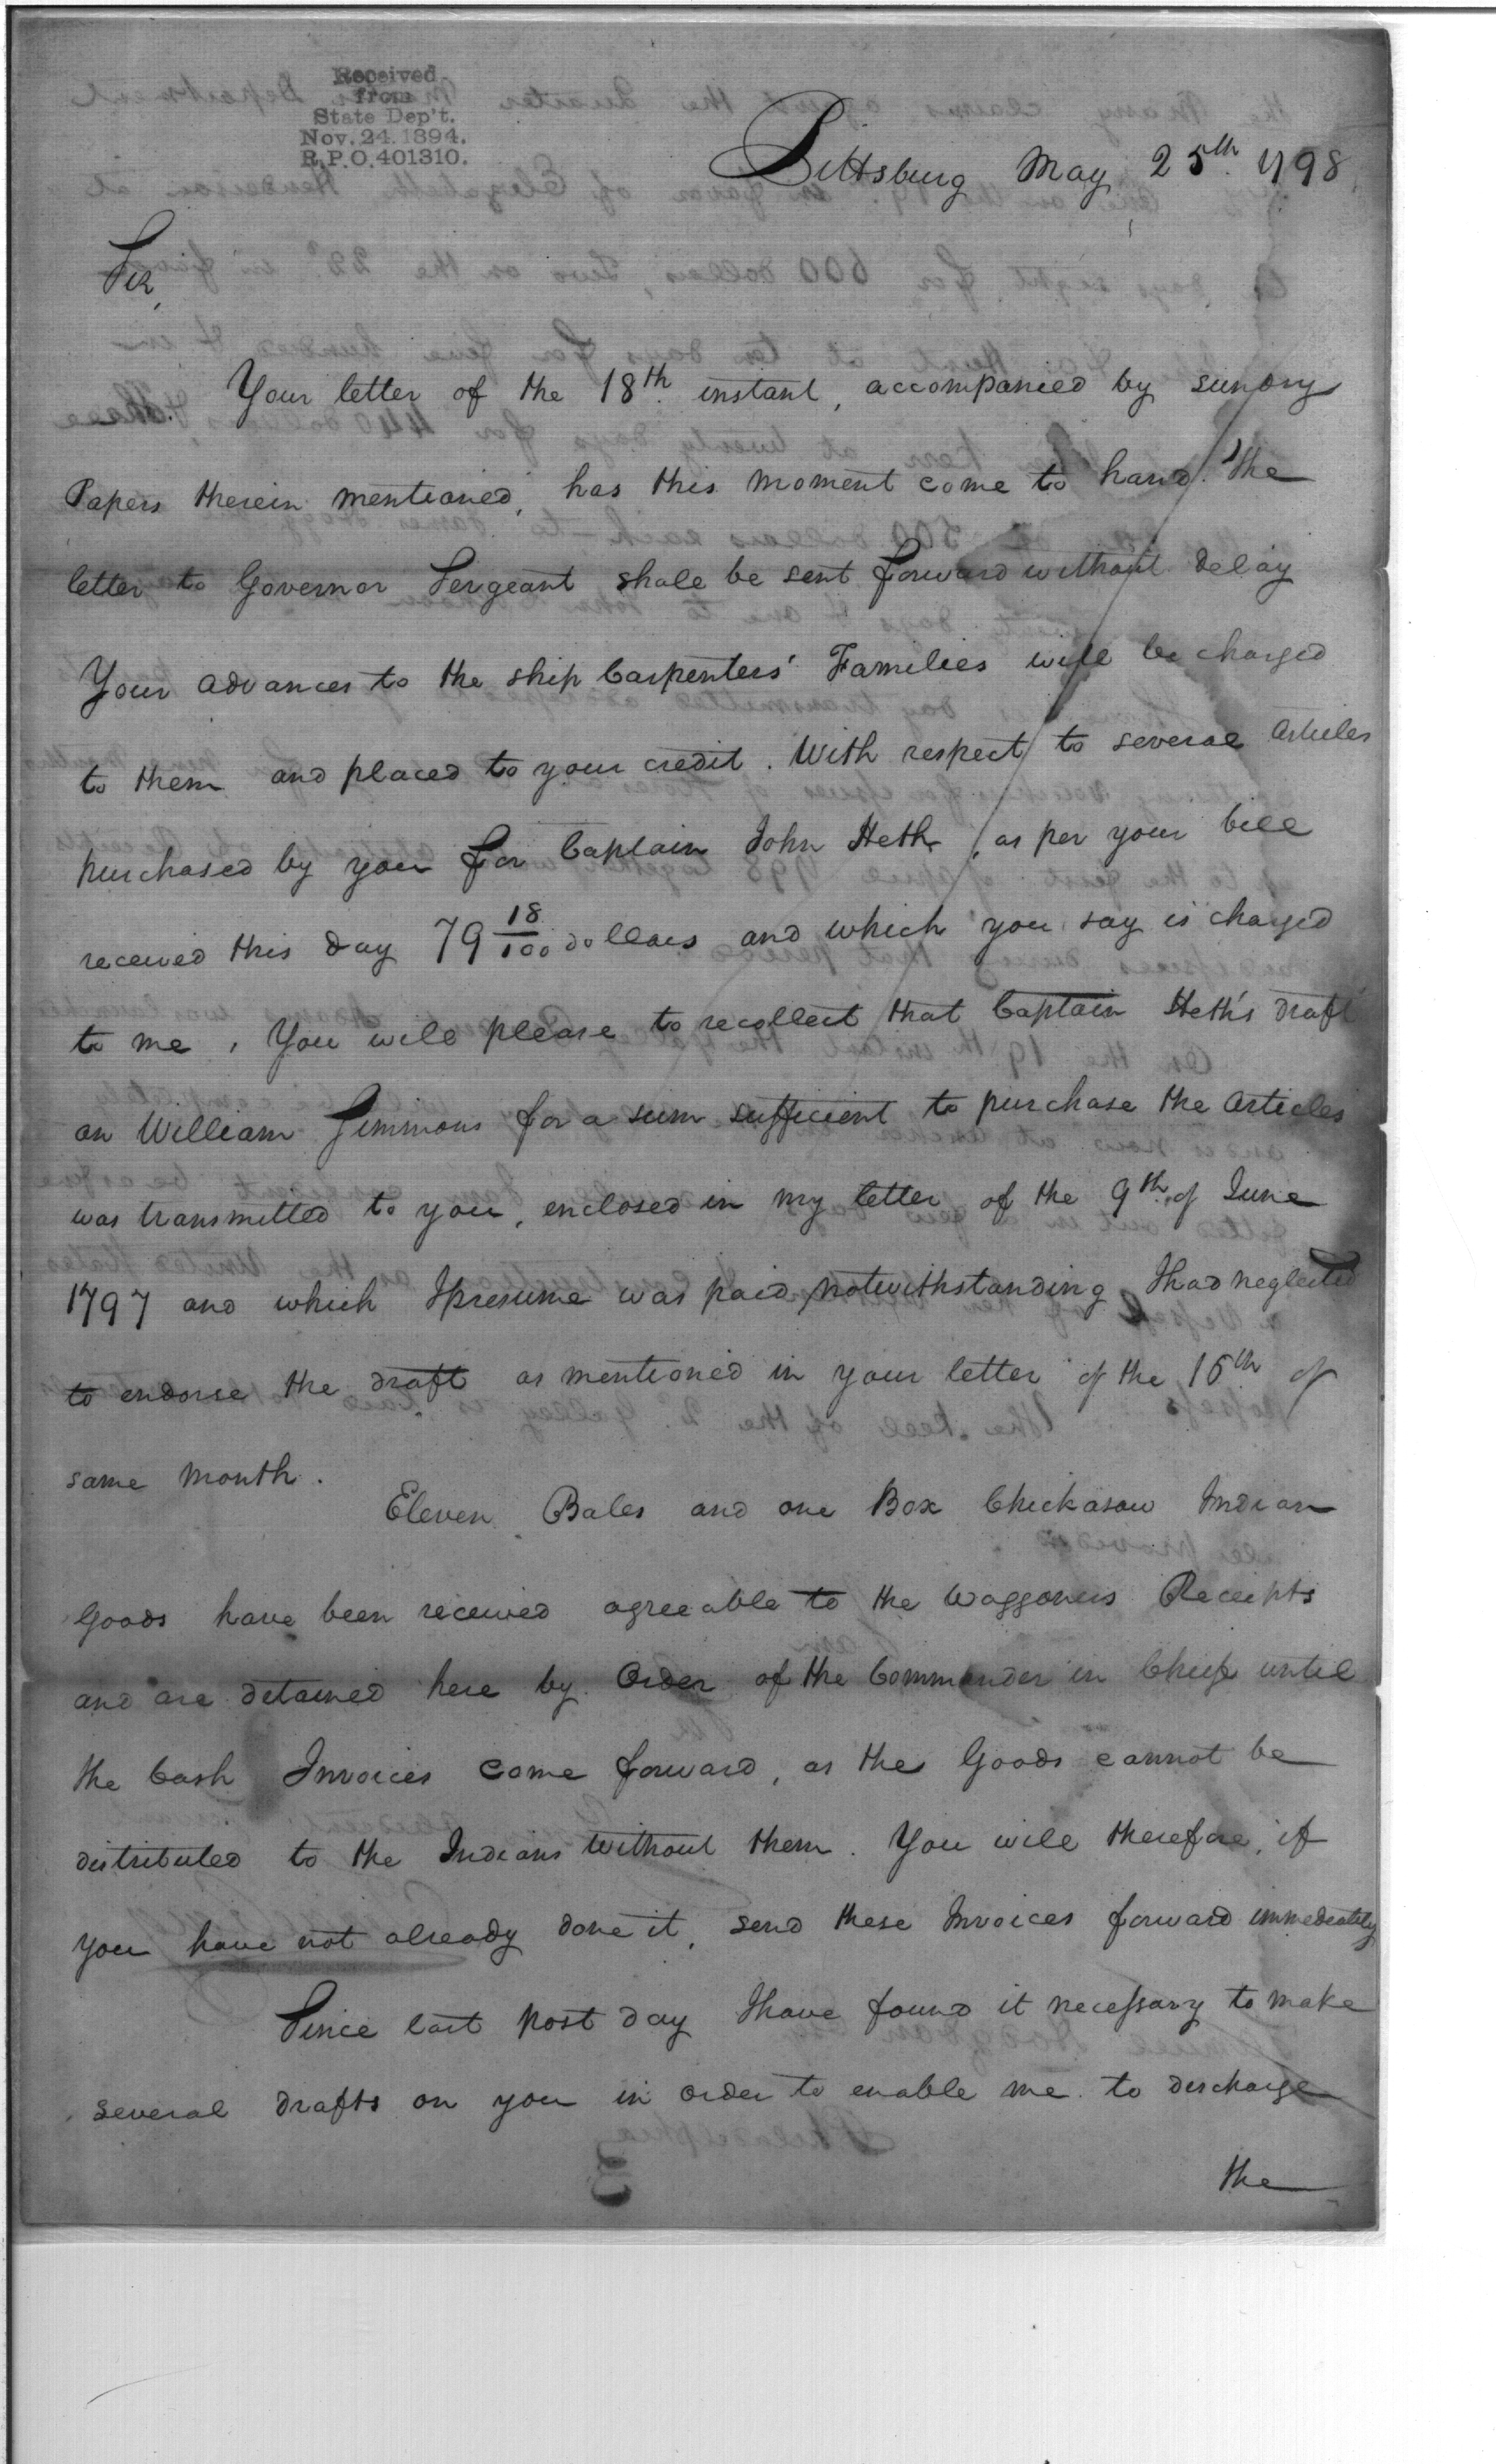 Received
from
State Dep't.
Nov. 24. 1894.
R.P.O. 401310.
Pittsburg May 25th. 1798
Sir,
Your letter of the 18th. instant, accompanied by sundry
Papers therein mentioned, has this moment come to hand. The
letter to Governor Sergeant shall be sent forward without delay
Your advances to the ship Carpenters' Families will be charged
to them and placed to your credit. With respect to several Articles
purchased by you for Captain John Heth, as per your bill
received this day 79 18/100 dollars and which you say is charged
to me, You will please to recollect that Captain Heth's draft
on William Simmons for a sum sufficient to purchase the Articles
was transmitted to you, enclosed in my letter of the 9th. of June
1797 and which I presume was paid, notwithstanding I had neglected
to endorse the draft as mentioned in your letter of the 16th of
same month.
Eleven Bales and one Box Chickasaw Indian
Goods have been received agreeable to the Waggoners Receipts
and are detained here by Order of the Commander in Chief until
the Cash Invoices come forward, as the Goods cannot be
distributed to the Indians without them. You will therefore, if
you have not already done it, send these Invoices forward immediately
Since last post day I have found it necessary to make
several drafts on you in order to enable me to discharge
the